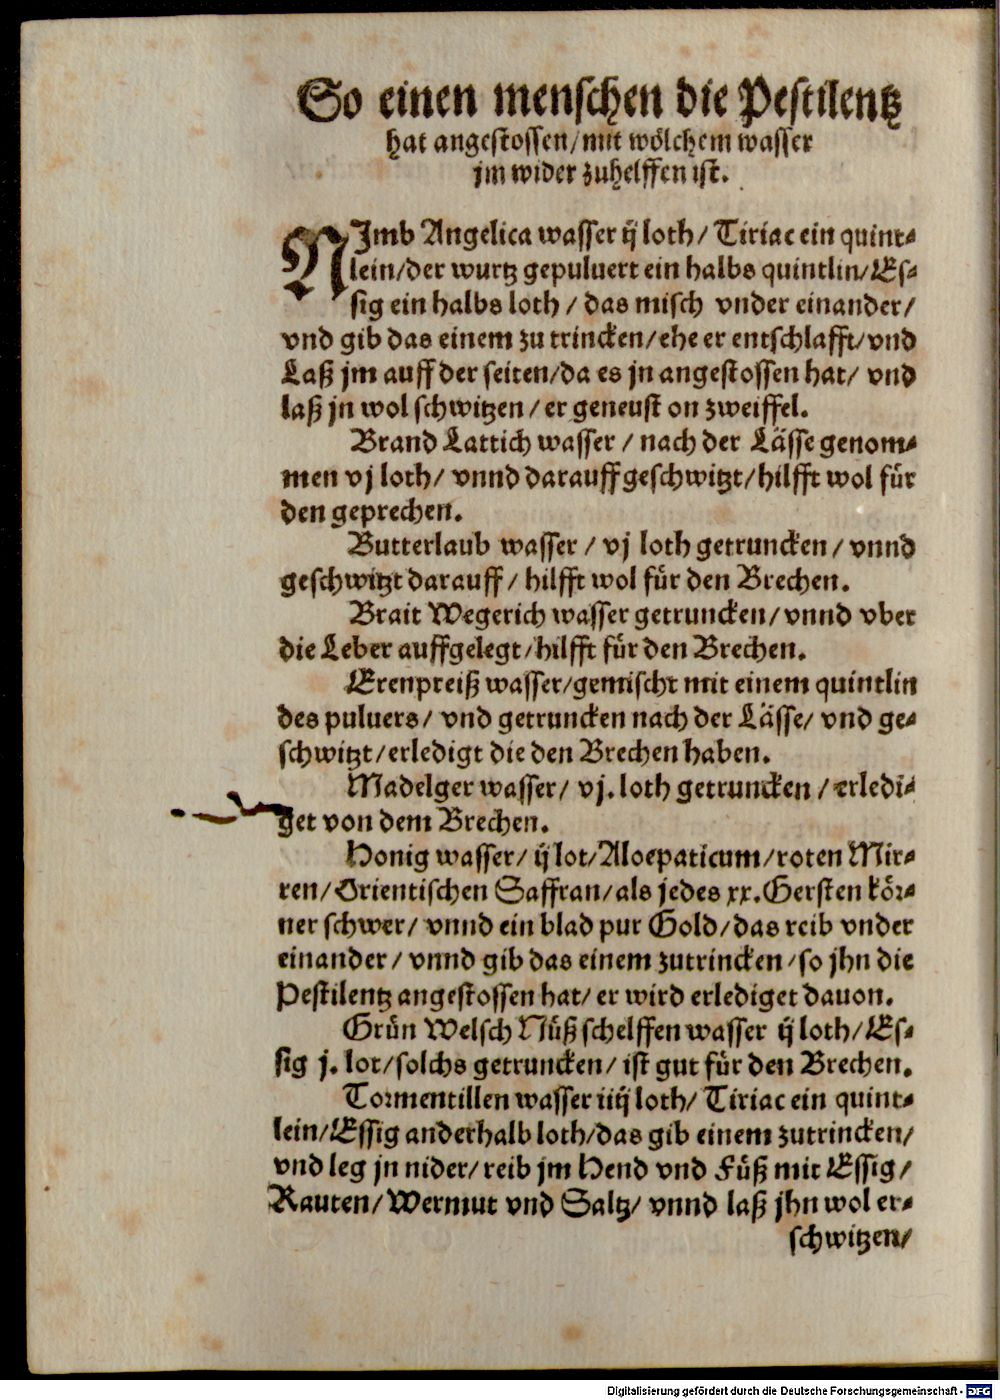 So einen menschen die Pestilentz
hat angestossen / mit wölchem wasser
jm wider zuhelffen ist.
NImb Angelica wasser ij loth / Tiriac ein quint-
lein / der wurtz gepuluert ein halbs quintlin / Es-
sig ein halbs loth / das misch vnder einander /
vnd gib das einem zu trincken / ehe er entschlafft / vnd
Laß jm auff der seiten / da es jn angestossen hat / vnd
laß jn wol schwitzen / er geneust on zweiffel.
Brand Lattich wasser / nach der Lässe genom-
men vj loth / vnnd darauff geschwitzt / hilfft wol für
den geprechen.
Butterlaub wasser / vj loth getruncken / vnnd
geschwitzt darauff / hilfft wol für den Brechen.
Brait Wegerich wasser getruncken / vnnd vber
die Leber auffgelegt / hilfft für den Brechen.
Erenpreiß wasser / gemischt mit einem quintlin
des puluers / vnd getruncken nach der Lässe / vnd ge-
schwitzt / erledigt die den Brechen haben.
Madelger wasser / vj. loth getruncken / erledi-
get von dem Brechen.
Honig wasser / ij lot / Aloepaticum / roten Mir-
ren / Orientischen Saffran / als jedes xx. Gersten kör-
ner schwer / vnnd ein blad pur Gold / das reib vnder
einander / vnnd gib das einem zutrincken / so jhn die
Pestilentz angestossen hat / er wird erlediget dauon.
Grün Welsch Nüß schelffen wasser ij loth / Es-
sig j. lot / solchs getruncken / ist gut für den Brechen.
Tormentillen wasser iiij loth / Tiriac ein quint-
lein / Essig anderhalb loth / das gib einem zutrincken /
vnd leg jn nider / reib jm Hend vnd Füß mit Essig /
Rauten / Wermut vnd Saltz / vnnd laß jhn wol er-
schwitzen /
Digitalisierung gefördert durch die Deutsche Forschungsgemeinschaft - DFG